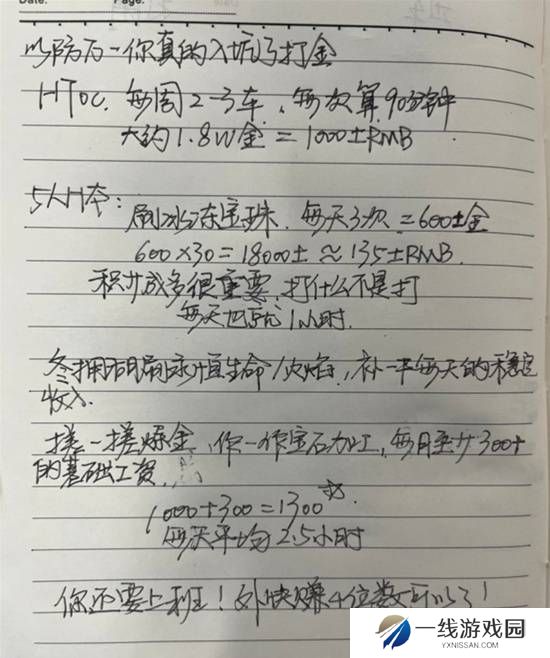 Date:
Page:
以防万一你真的入坑了打金
HTOC. 每周2-3车，每次算90分钟
大约1.8W金 = 1000±RMB
5人H本：
刷冰冻宝珠. 每天3次 = 600±金
600×30=18000± ≈ 135±RMB.
积少成多很重要，打什么不是打
每天也就1小时.
冬拥湖刷永恒生命/火焰，补一下每天的稳定
收入.
搓一搓炼金，你一作宝石加工，每月至少300+
的基础工资
1000+300=1300
每天平均2.5小时
你还要上班！外快赚4位数可以了！
一线游戏园
YXNISSAN.COM